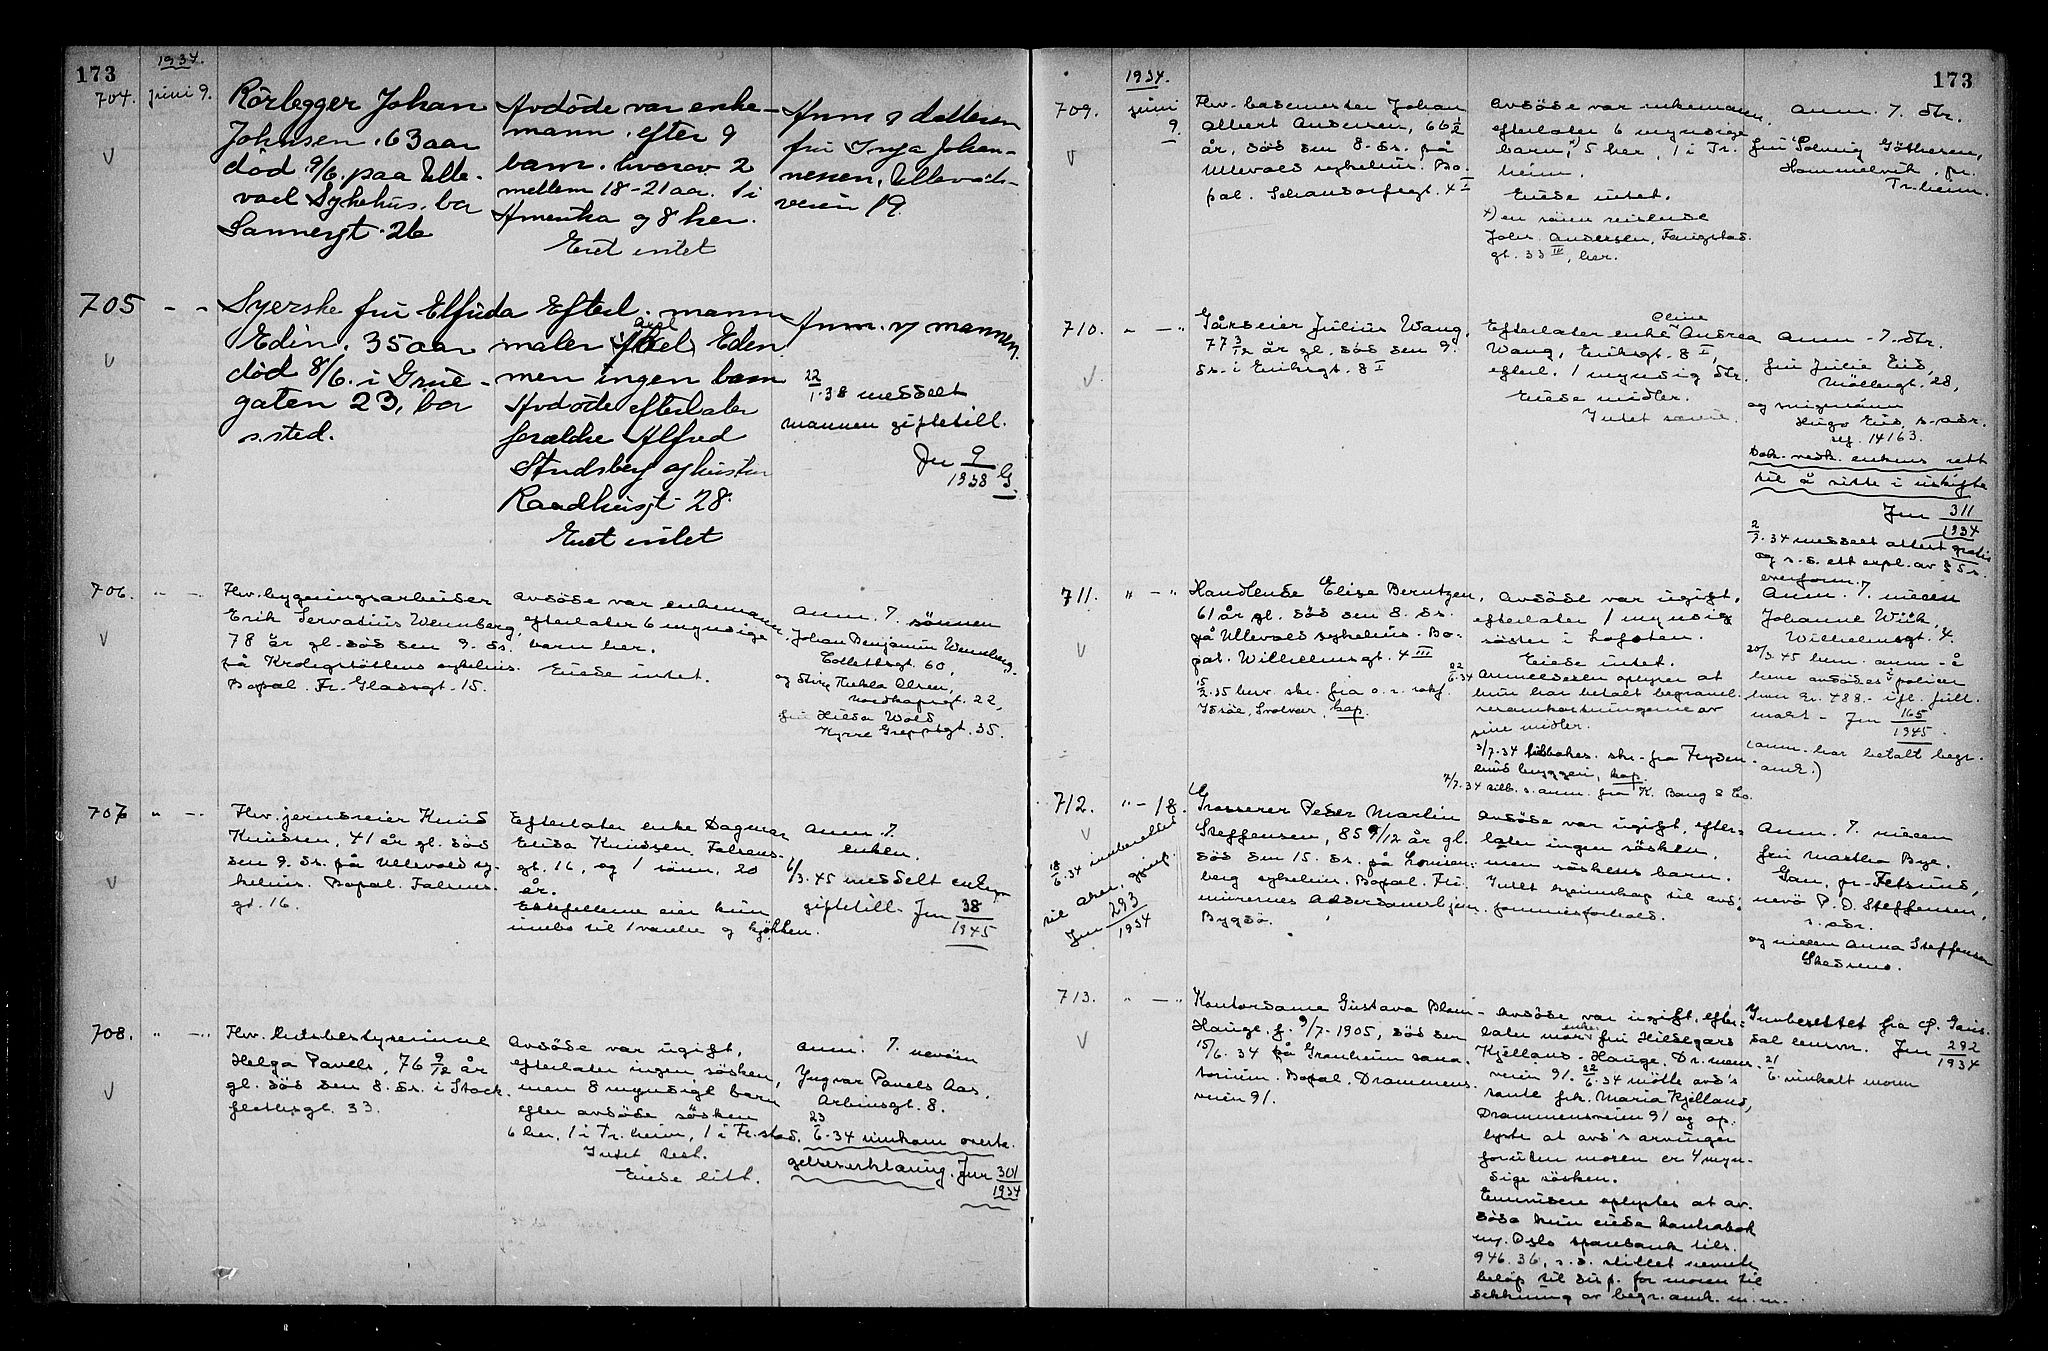 173
1934.
704. juni 9.
Rörlegger Johan
Johnsen. 63 aar
död 9/6. paa Ulle-
vaal Sykehus. bor
Sannergt. 26
Avdöde var enke-
mann. efter 9
barn. hvorav 2
mellem 18-21 aar. 1 i
Amerika og 8 her.
Eiet intet
Anm. v datteren
fru Inga Johan-
nessen, Ullevåls-
veien 19.
705 - -
Syerske fru Elfrida
Edin. 35 aar
död 8/6. i Grüe-
gaten 23, bor
s.sted.
Efterl. mann
maler Axel Eden
men ingen barn
Avdöde efterlater
forældre Alfred
Strndsberg og hustru
Raadhusgt. 28.
Eiet intet
Anm. v mannen.
22/1.38 meddelt
mannen giftetill.
Jnr 9/1938 G.
706. " - "
Fhv. bygningsarbeider
Erik Servatius Wennberg,
78 år gl. död den 9. ds.
på Krohgstöttens sykehus.
Bopæl. Fr. Gladsgt. 15.
Avdöde var enkemann,
efterlater 6 myndige
barn her.
Eiede intet.
Anm. 7. sönnen
Johan Benjamin Wennberg.
Collettsgt. 60,
og Thekla Olsen,
Nordkapgt. 22,
fru Hilda Wold
Kyrre Greppsgt. 35.
707 " - "
Fhv. jerndreier Knud
Knudsen, 41 år gl. död
den 9. ds. på Ullevold sy-
kehus. Bopæl. Falsens-
gt. 16.
Efterlater enke Dagmar
Knudsen, Falsens-
gt. 16, og 1 sönn, 20
år.
Ektefellene eier kun
innbo til 1 værelse og kjökken.
Anm. 7.
enken.
6/3.45 meddelt enken
giftetill. Jnr 38/1945
708. " - "
Fhv. husbestyrerinne
Helga Pavels, 76 9/12 år
gl. död den 8. ds. i Stock-
flethsgt. 33.
Avdöde var ugift,
efterlater ingen söskén,
men 8 myndige barn
efter avdöde sösken
6 her, 1 i Tr.heim, 1 i Fr.stad.
Intet test.
Eiede litt.
Anm. 7. nevöen
Yngvar Pavels Aas,
Arbinsgt. 8.
23/6.34 innkom overta-
gelseserklæring. Jnr 301/1934
173
1934.
709. juni 9.
Fhv. basemester Johan
Albert Andersen, 66 1/2
år, död den 8. ds. på
Ullevold sykehus. Bo-
pæl. Schandorfsgt. 4 I
Avdöde var enkemann,
efterlater 6 myndige
barn, x) 5 her, 1 i Tr.
heim.
Eiede intet.
x) en sönn reisende
Johs. Andersen, Fougstad.
gt. 33 III, her.
Anm. 7. dtr.
fru Solveig Götheren,
Hommelvik, pr.
Tr.heim.
710. " - "
Gårdeier Julius Wang,
77 3/12 år gl. död den 9.
ds. i Eriksgt. 8 I
Efterlater enke Oline Andrea
Wang, Eriksgt. 8 I,
efterl. 1 myndig dtr.
Eiede midler.
Intet særeie.
Anm. 7. dtr.
fru Julie Eid,
Möllergt. 28,
og svigersönn
Hugo Eid, s. adr.
tlf. 14163.
Dok. vedk. enkens rett
til å sitte i uskifte
Jnr 311/1934
2/7.34 meddelt attest gratis
og s.d. ett expl. av § 5 s.
711. " - "
Handlende Elise Berntzen,
61 år gl. död den 8. ds.
på Ullevold sykehus. Bo-
pæl. Wilhelmsgt. 4 III
Svolvær, kap.
Avdöde var ugift,
efterlater 1 myndig
söster i Lofoten.
Eiede intet.
22/6.34 Anmelderen oplyser at
hun har betalt begravel-
sesomkostningene av
sine midler.
3/7.34 tilbakes. skr. fra Fryden-
lunds bryggeri, kap.
7/7.34 tilb. s. anm. fra K. Bang & Co.
Anm. 7. niecen
Johanne Wiik,
Wilhelmsgt. 4.
20/3.45 hun. anm. å
heve avdödes i policer
kr 488.- ifl. full-
makt - Jnr 165/1945.
(anm. har betalt begr.
omk.)
712. " - 18.
18/6.34 innberettet
til
Jnr 293/1934
Grosserer Peder Martin
Steffensen, 85 9/12 år gl.
död den 15. ds. på Lovisen-
berg sykehus. Bopæl. Fri-
murernes Aldershvilehjem,
Bygdö.
Avdöde var ugift, efter-
later ingen sösken,
men söskens barn.
Intet kjennskap til avd's
formuesforhold.
Anm. 7. niecen
fru Martha Bye,
Gan, pr. Fetsund,
nevö P. O. Steffensen,
s. adr.
og niecen Anna Steffensen
Skedsmo.
713. " - "
Kontordame Gustava Blom
Hauge, f. 9/7-1905, död den
15/6.34 på Granheim sana-
torium. Bopæl. Drammens-
veien 91.
Avdöde var ugift, efter-
later mor enke fru Hildegard
Kjelland-Hauge. Dr.mens-
veien 91. 22/6.34 mötte avd's
tante frk. Maria Kjelland,
Drammensveien 91 og op-
lyste at avd's arvinger
foruten moren er 4 myn-
dige sösken.
Ennvidere oplystes at av-
döde kun eiede bankbok
på Oslo sparebank lik.
946.36, s.d. stillet nevnte
belöp til disp. for moren til
dekning av begr. omk. m.m.
Innberettet fra Gaus-
dal lensm. Jnr 292/1934
21/6. innkalt moren